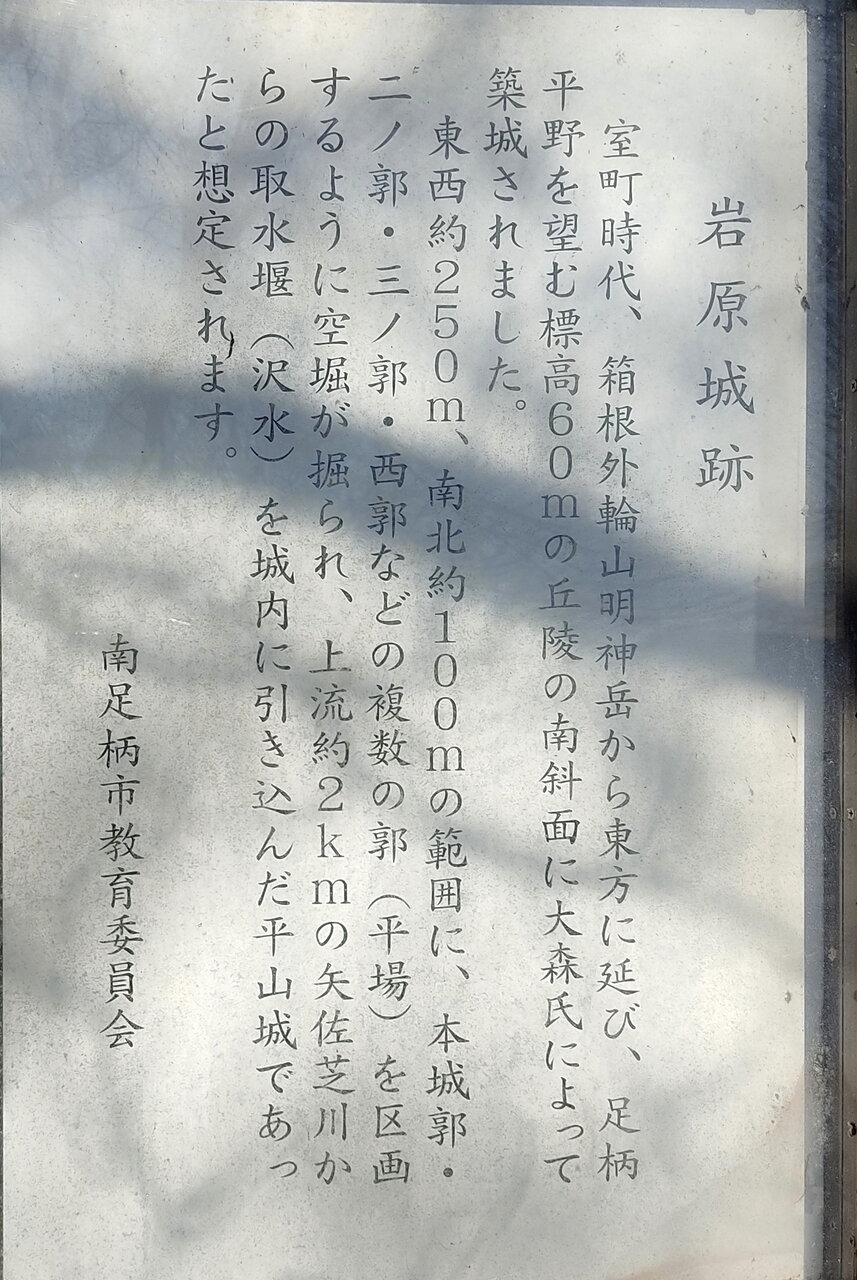 岩原城跡
室町時代、箱根外輪山明神岳から東方に延び、足柄
平野を望む標高60mの丘陵の南斜面に大森氏によって
築城されました。
東西約250m、南北約100mの範囲に、本城郭・
二ノ郭・三ノ郭・西郭などの複数の郭（平場）を区画
するように空堀が掘られ、上流約2kmの矢佐芝川か
らの取水堰（沢水）を城内に引き込んだ平山城であっ
たと想定されます。
南足柄市教育委員会